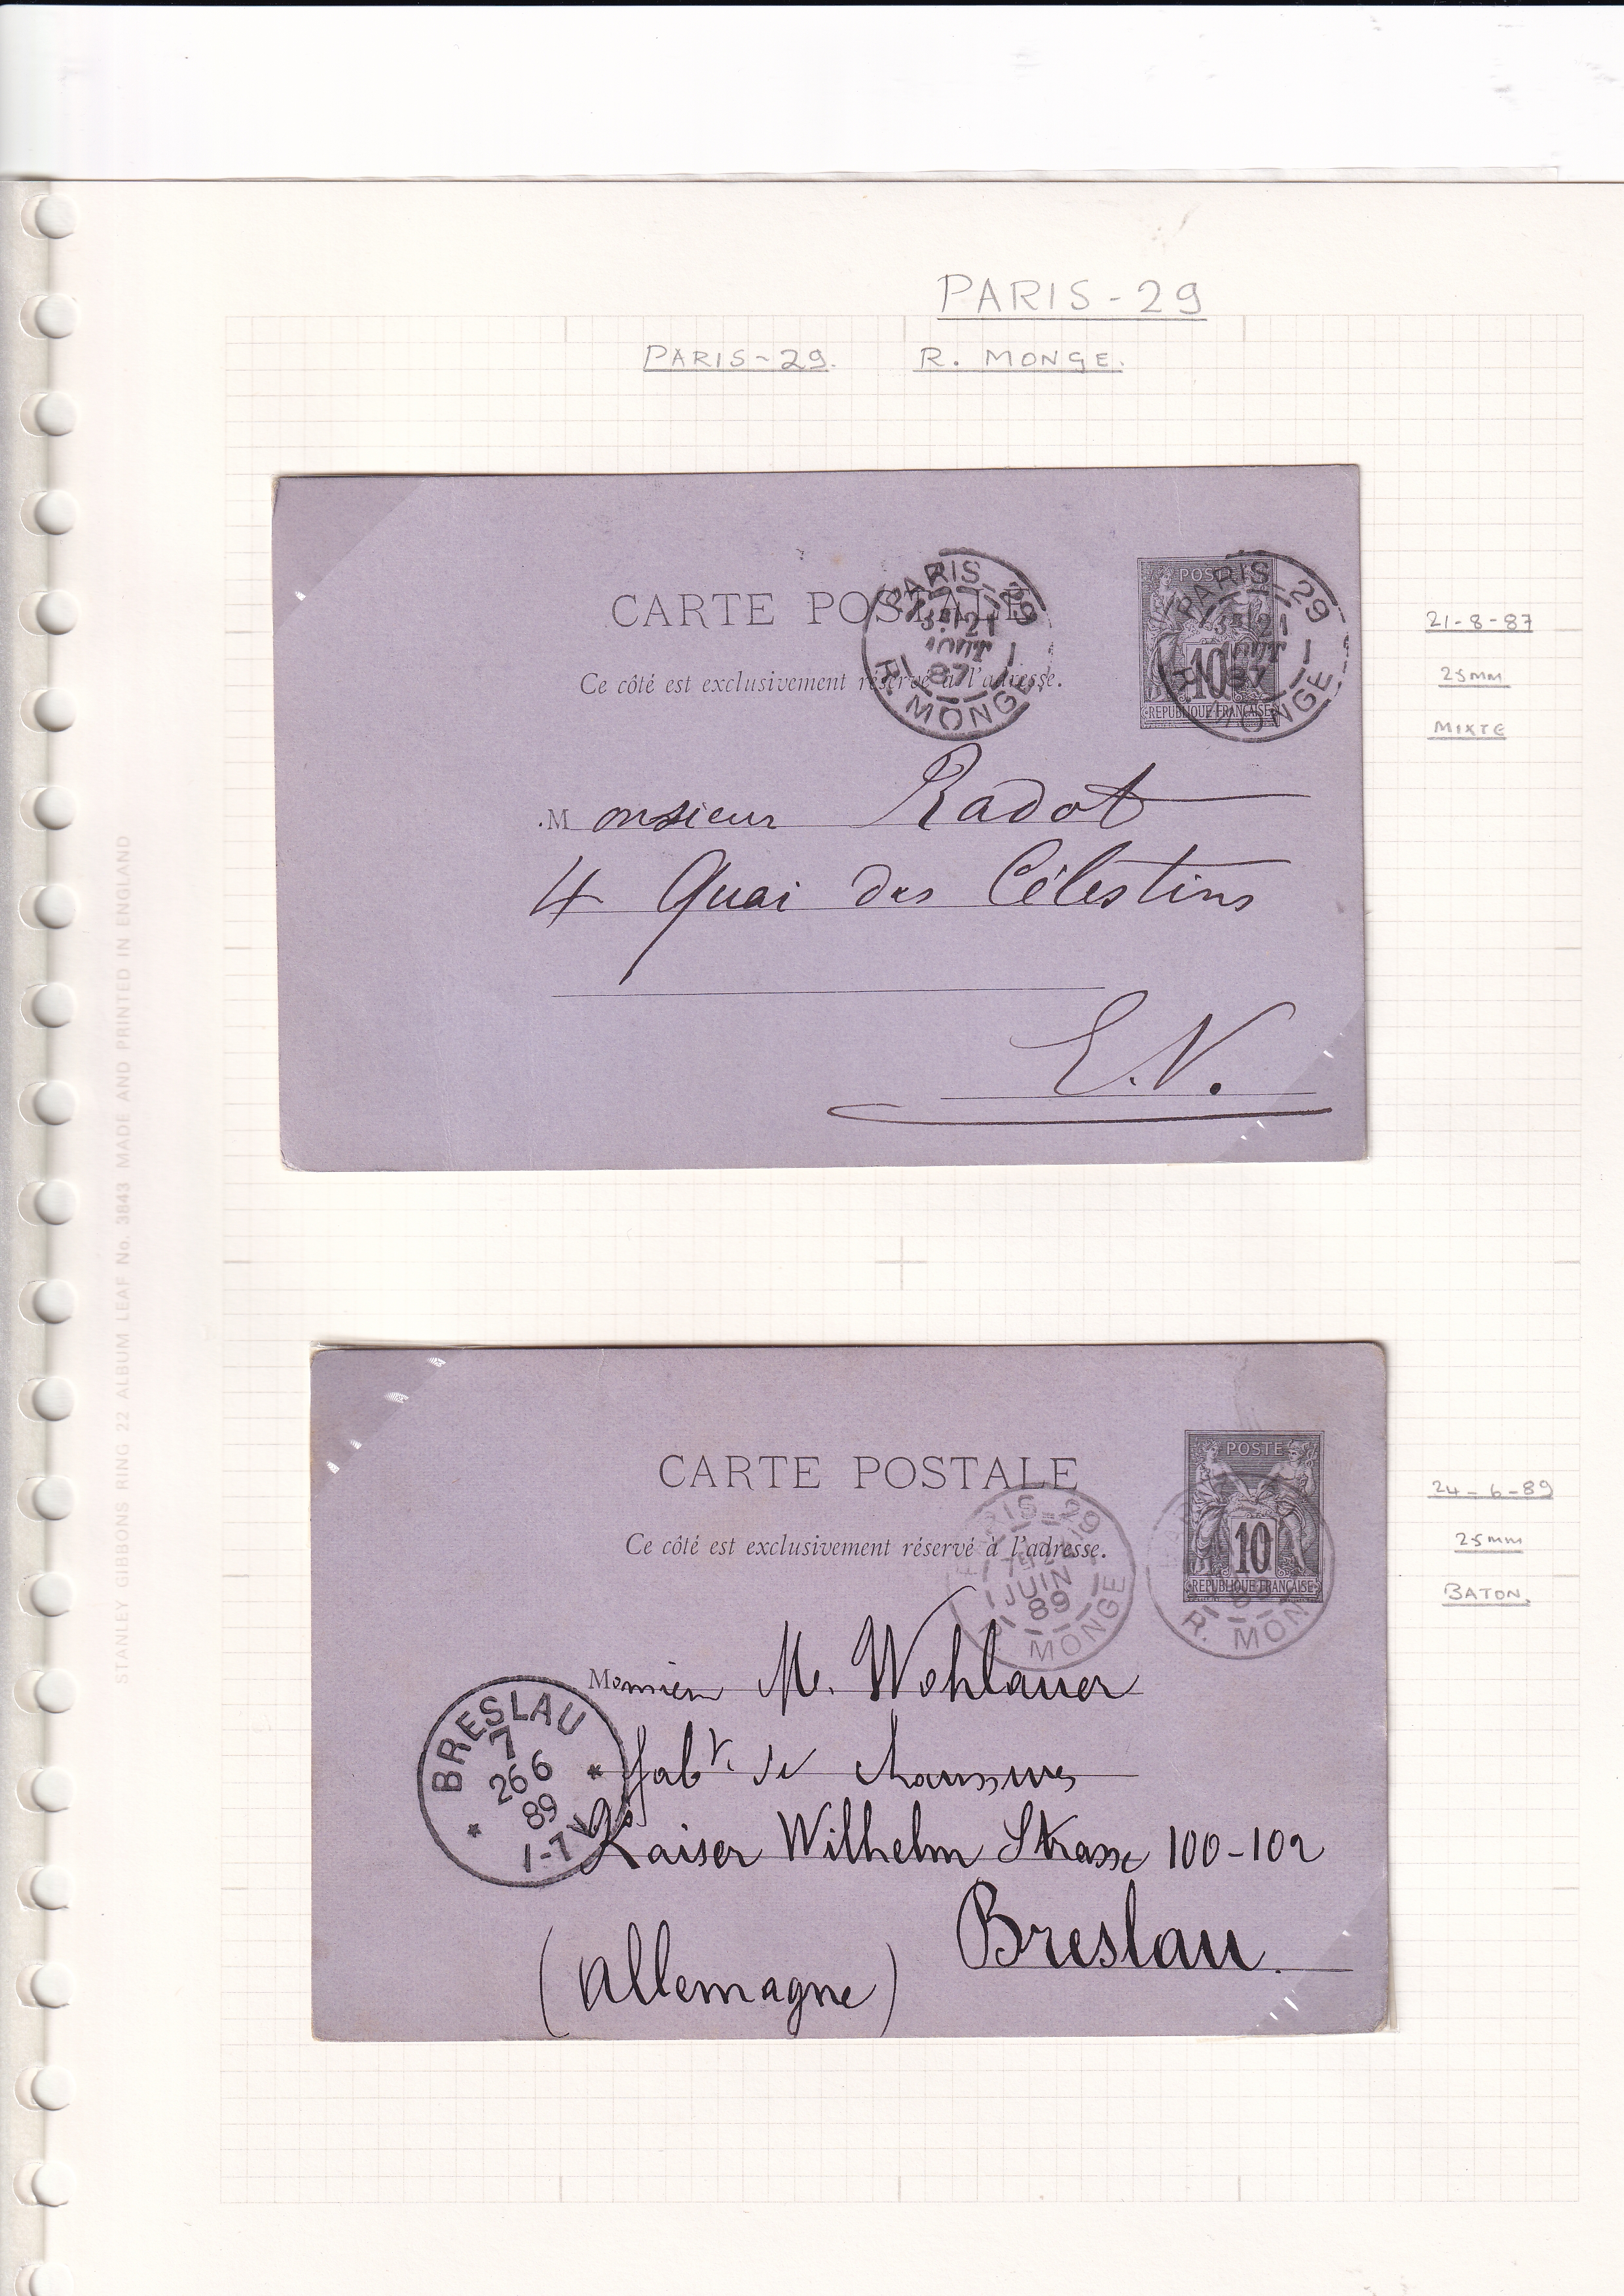 PARIS-29
PARIS-29. R. MONGE.
CARTE POSTALE
Ce côté est exclusivement réservé à l'adresse.
PARIS-29
21
AOUT
87
R. MONGE
POSTE
10
REPUBLIQUE FRANÇAISE
PARIS-29
21
AOUT
87
MONGE
21-8-87
25mm
MIXTE
Monsieur Radot
4 Quai des Célestins
E.V.
STANLEY GIBBONS RING 22 ALBUM LEAF No. 3843 MADE AND PRINTED IN ENGLAND
CARTE POSTALE
Ce côté est exclusivement réservé à l'adresse.
RIS-29
JUIN
89
MONGE
POSTE
10
REPUBLIQUE FRANÇAISE
R. MON
24-6-89
25mm
BATON.
Monsieur M. Wohlauer
fabt. de chaussures
Kaiser Wilhelm Strasse 100-102
Breslau.
(Allemagne)
BRESLAU
7
26 6
89
1-7V